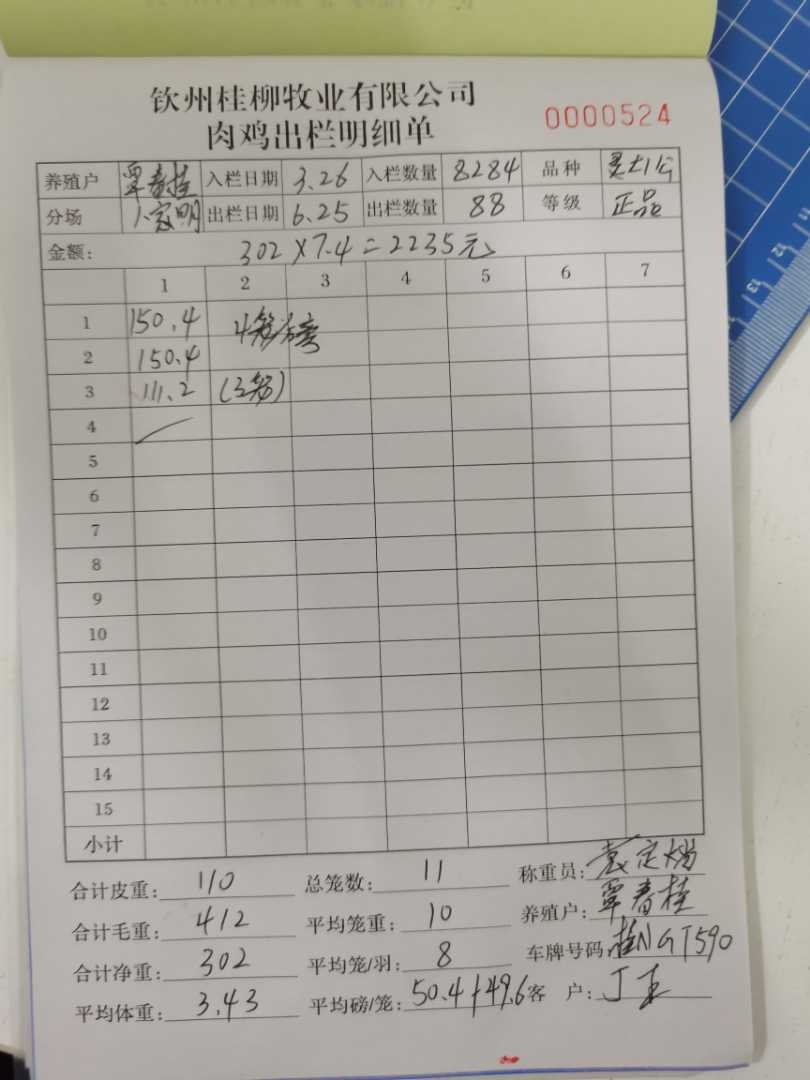 钦州桂柳牧业有限公司
肉鸡出栏明细单 0000524
养殖户 覃春桂 入栏日期 3.26 入栏数量 8284 品种
分场 出栏日期 6.25 出栏数量 88 等级 正品
金额: 302×7.4=2235元
1 2 3 4 5 6 7
1 150.4
2 150.4
3 111.2
4
5
6
7
8
9
10
11
12
13
14
15
小计
合计皮重: 110 总笼数: 11 称重员:
合计毛重: 412 平均笼重: 10 养殖户: 覃春桂
合计净重: 302 平均笼/羽: 8 车牌号码: 桂NGT590
平均体重: 3.43 平均磅/笼: 50.4 49.6 客 户: